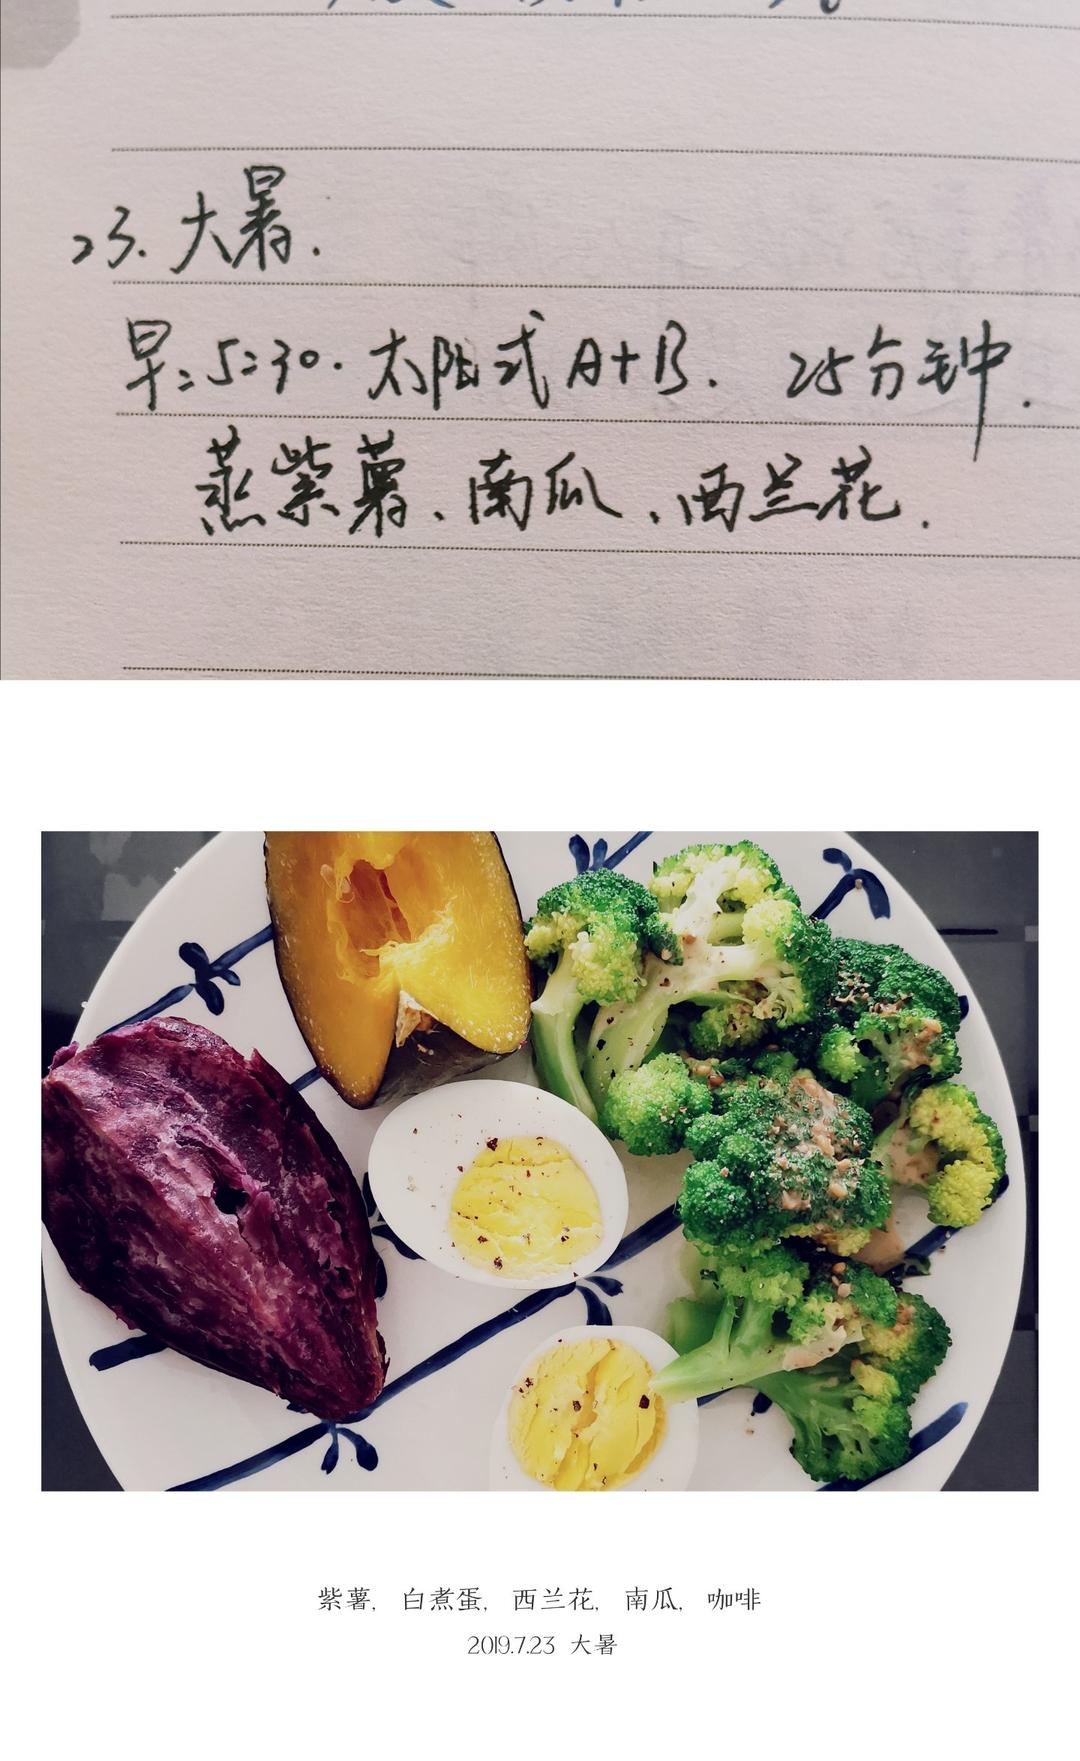 23. 大暑.
早: 5:30. 太阳式 A+B. 25分钟.
蒸紫薯、南瓜、西兰花.
紫薯, 白煮蛋, 西兰花, 南瓜, 咖啡
2019.7.23 大暑